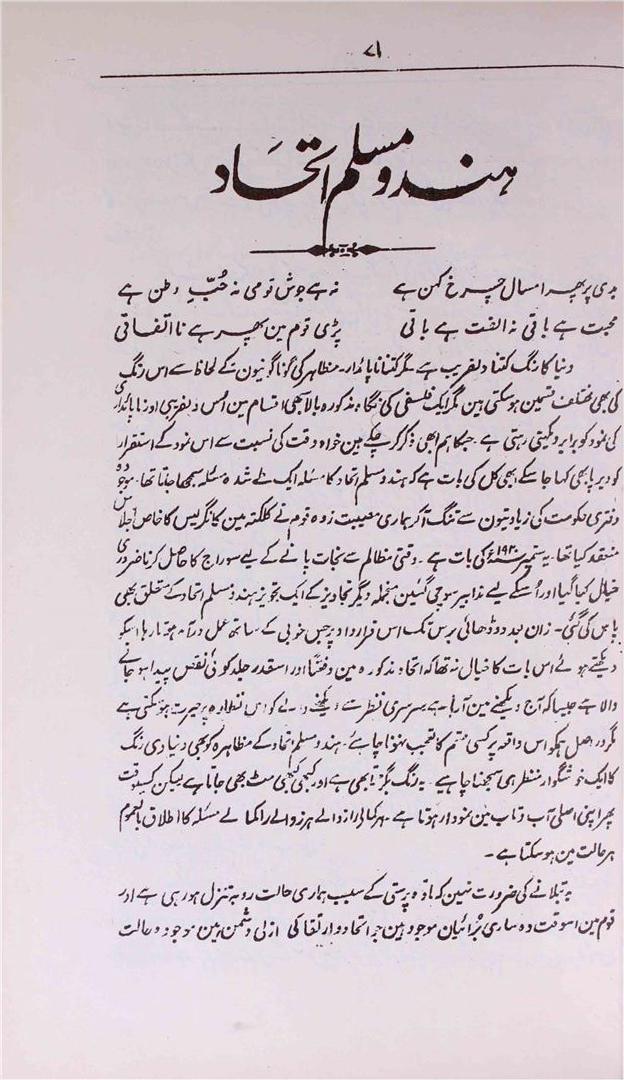 ۷۱
ہندو مسلم اتحاد
بدی پر پھر امسال چرخ کہن ہے نہ ہے جوش قومی نہ حُبِّ وطن ہے
محبت ہے باقی نہ الفت ہے باقی پڑی قوم مین پھر ہے نااتفاقی
دنیا کا رنگ کتنا دلفریب ہے۔ مگر کتنا ناپائدار۔ مظاہر کی گوناگونیون کے لحاظ سے اس رنگ
کی بھی مختلف قسمین ہوسکتی ہین مگر ایک فلسفی کی نگاہ مذکورہ بالا سبھی اقسام مین اُس دلفریبی اور ناپائداری
کی نمود کو برابر دیکھتی رہتی ہے۔ جسکا ہم ابھی ذکر کرچکے ہین خواہ وقت کی نسبت سے اس نمود کے استقرار
کو دیرپا بھی کہا جاسکے ابھی کل کی بات ہے کہ ہندو مسلم اتحاد کا مسئلہ ایک طے شدہ مسئلہ سمجھا جاتا تھا۔ موجودہ
دفتری حکومت کی زیادتیون سے تنگ آکر ہماری مصیبت زدہ قوم نے کلکتہ مین کانگریس کا خاص اجلاس
منعقد کیا تھا۔ یہ ستمبر ۱۹۲۰ء کی بات ہے۔ وقتی مظالم سے نجات پانے کے لیے سوراج کا حاصل کرنا ضروری
خیال کیا گیا اور اُسکے لیے تدابیر سوچی گئین منجملہ دیگر تجاویز کے ایک تجویز ہندو مسلم اتحاد کے متعلق بھی
پاس کی گئی۔ زان بعد دو ڈھائی برس تک اس قرارداد پر جس خوبی کے ساتھ عمل درآمد ہوتا رہا اسکو
دیکھتے ہوئے اس بات کا خیال نہ تھا کہ اتحاد مذکورہ مین دفعتاً اور اسقدر جلد کوئی نقص پیدا ہو جانے
والا ہے جیسا کہ آج دیکھنے مین آرہا ہے سرسری نظر سے دیکھنے والے کو اس نظارہ پر حیرت ہوسکتی ہے
مگر دراصل ہمکو اس واقعہ پر کسی قسم کا تعجب نہونا چاہئے۔ ہندو مسلم اتحاد کے مظاہرہ کو بھی دنیاوی رنگ
کا ایک خوشگوار منظر ہی سمجھنا چاہیے۔ یہ رنگ بگڑتا بھی ہے اور کبھی کبھی مٹ بھی جاتا ہے لیکن کسیوقت
پھر اپنی اصلی آب و تاب مین نمودار ہوتا ہے۔ ہر کمالی را زوالے ہر زوالے را کمالے مسئلہ کا اطلاق بالعموم
ہر حالت مین ہوسکتا ہے۔
یہ بتلانے کی ضرورت نہین کہ مادّہ پرستی کے سبب ہماری حالت رو بہ تنزل ہورہی ہے اور
قوم مین اسوقت وہ ساری بُرائیان موجود ہین جو اتحاد و ارتقا کی ازلی دشمن ہین موجودہ حالت